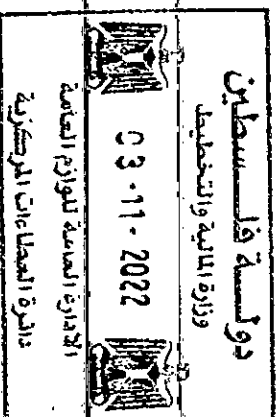 دولة فلسطين
وزارة المالية والتخطيط
03-11-2022
الادارة العامة للوازم العامة
دائرة العطاءات المركزية